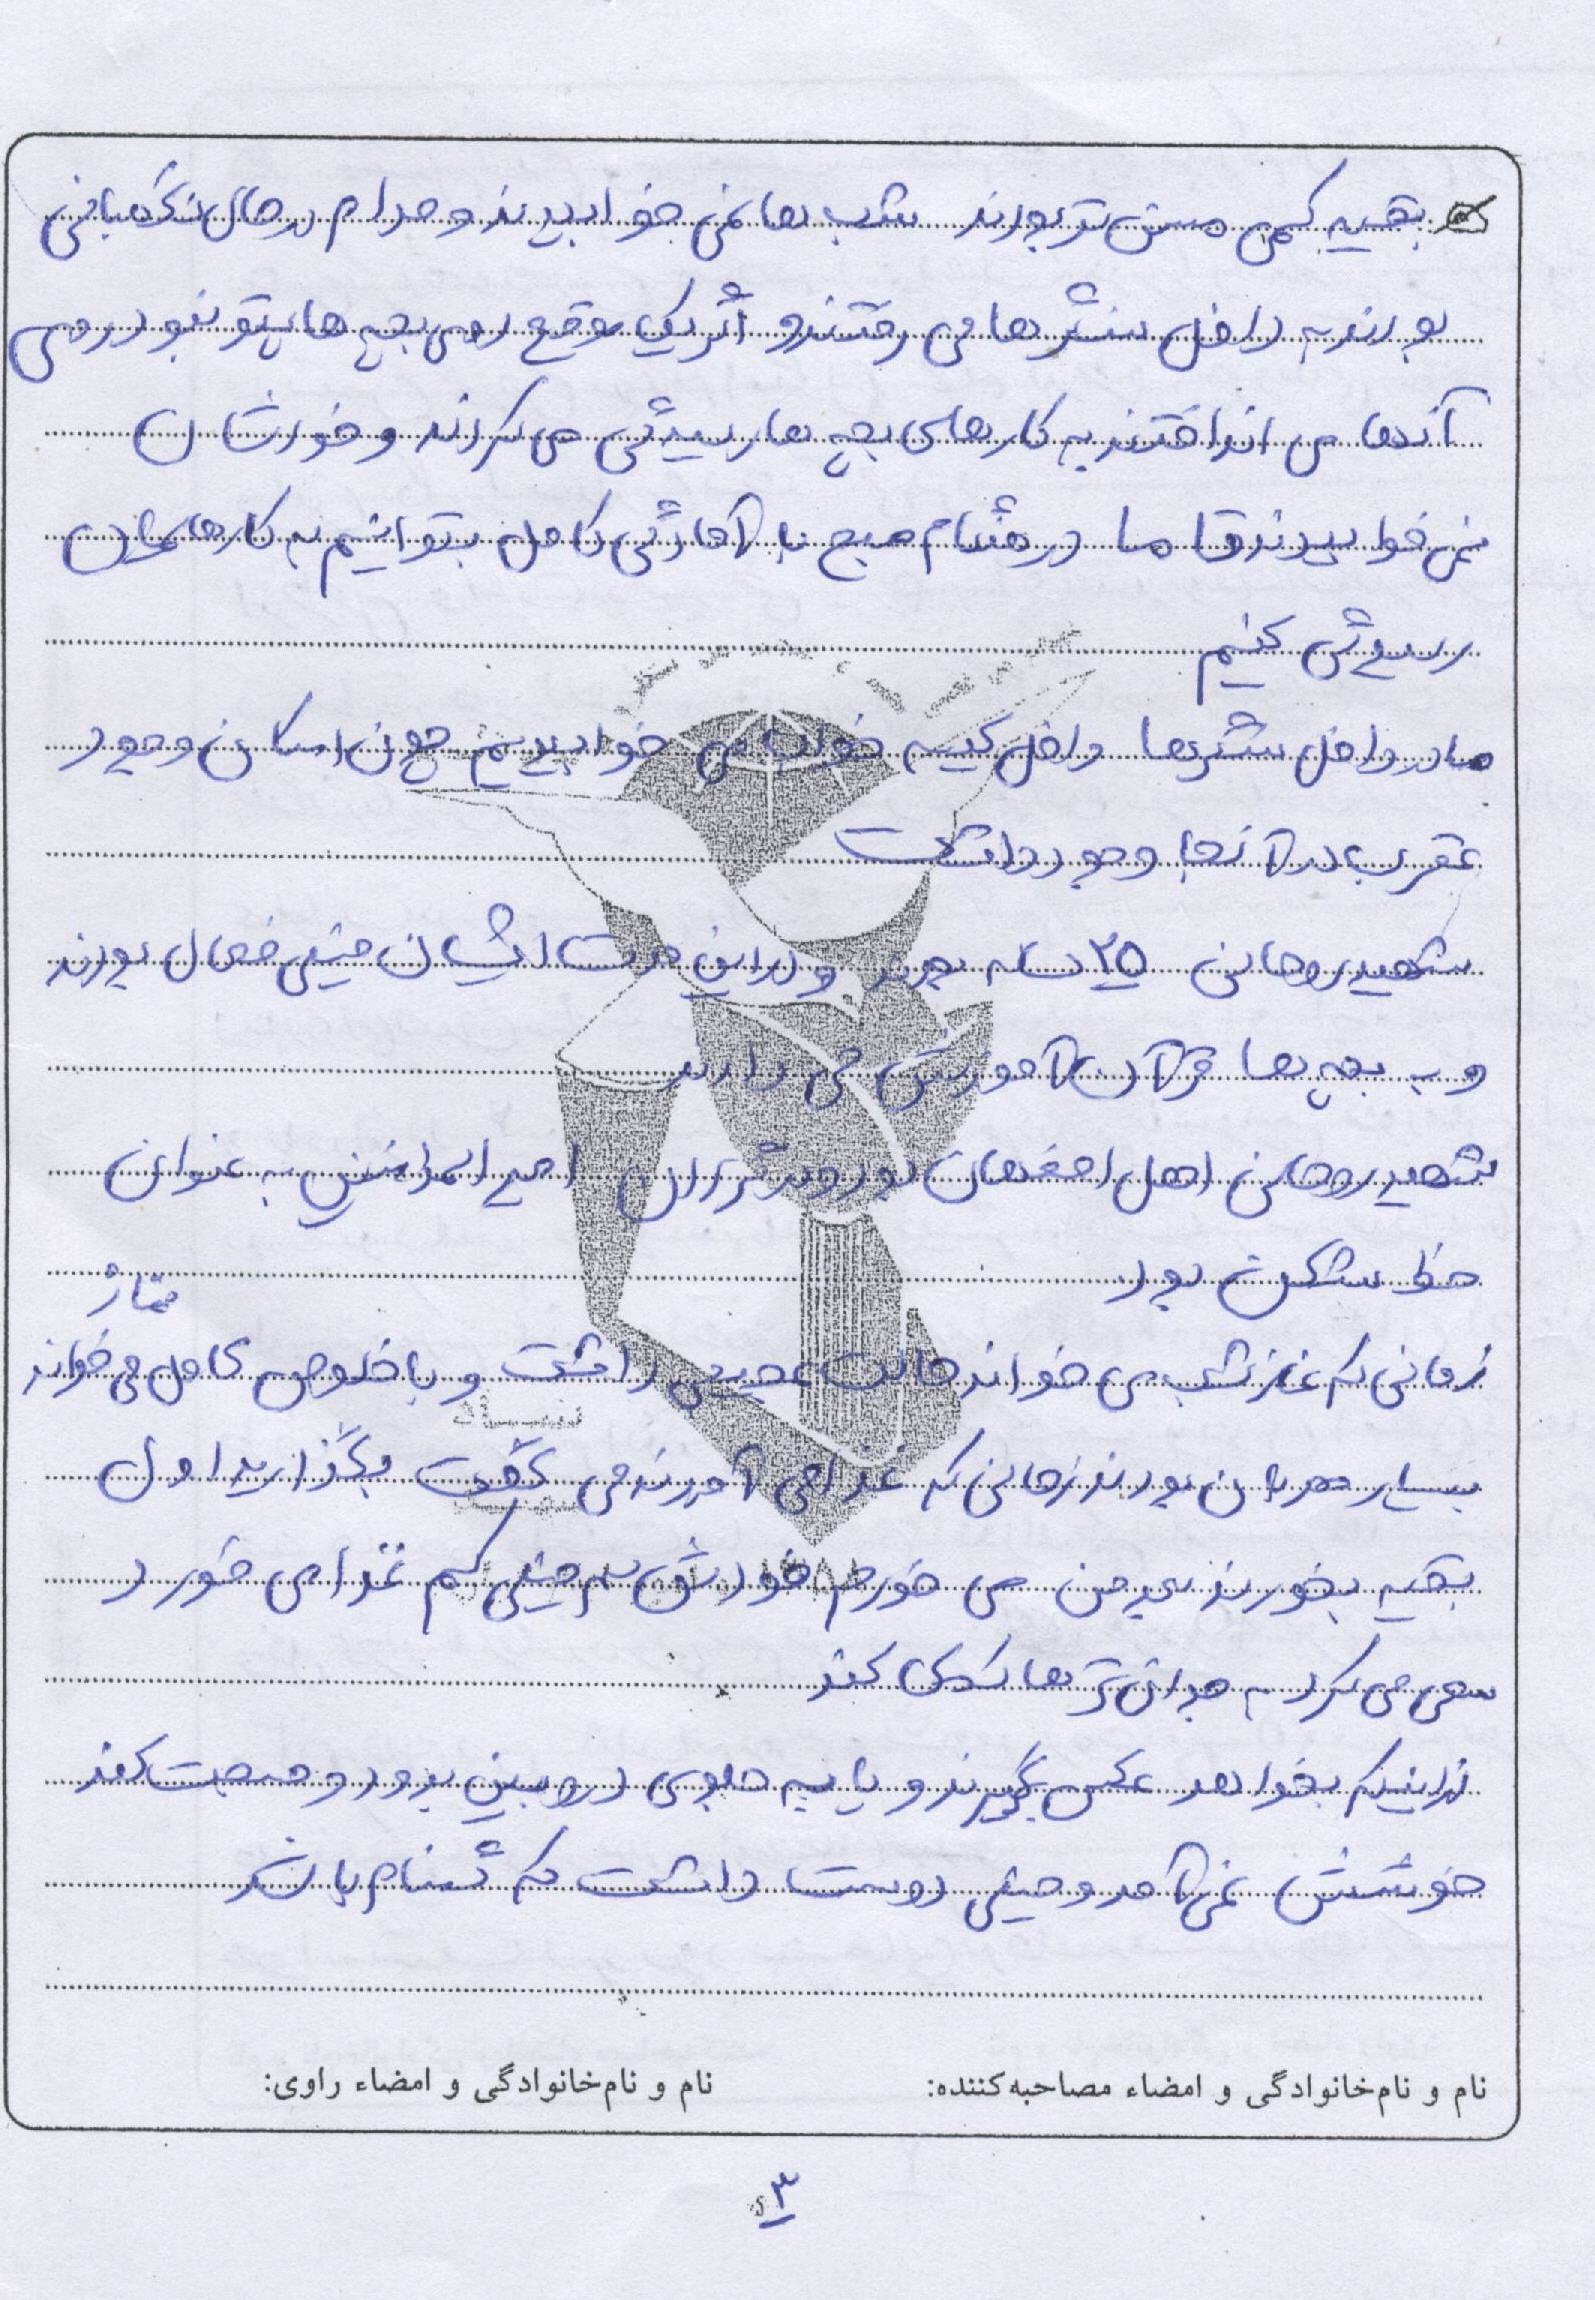 بقیه کمی مسن تر بودند شب ها نمی خوابیدند و مدام در حال نگهبانی
بودند به داخل سنگرها می رفتند و اگر یک موقع روی بچه ها پتو نبود روی
آنها می انداختند به کارهای بچه ها رسیدگی می کردند و خودشان
نمی خوابیدند تا ما در هنگام صبح با آمادگی کامل بتوانیم به کارهایمان
رسیدگی کنیم
ما در داخل سنگرها داخل کیسه خواب می خوابیدیم چون امکان وجود
عقرب در آنجا وجود داشت
شهید روحانی ۲۵ ساله بودند و در این مدت ایشان خیلی فعال بودند
و به بچه ها قرآن آموزش می دادند
شهید روحانی اهل اصفهان بود و در گردان امیرالمومنین به عنوان
خط شکن بود
نماز
زمانی که نماز شب می خواند حالت عجیبی داشت و با خلوص کامل می خواند
بسیار مهربان بودند زمانی که غذا می آوردند می گفت بگذارید اول
بقیه بخورند بعد من می خورم خودش هم خیلی کم غذا می خورد
سعی می کرد به جوان ترها کمک کند
از اینکه بخواهد عکس بگیرند و یا به جلوی دوربین برود و صحبت کند
خوشش نمی آمد و خیلی دوست داشت که گمنام باشد
نام و نام خانوادگی و امضاء مصاحبه کننده: نام و نام خانوادگی و امضاء راوی:
۳